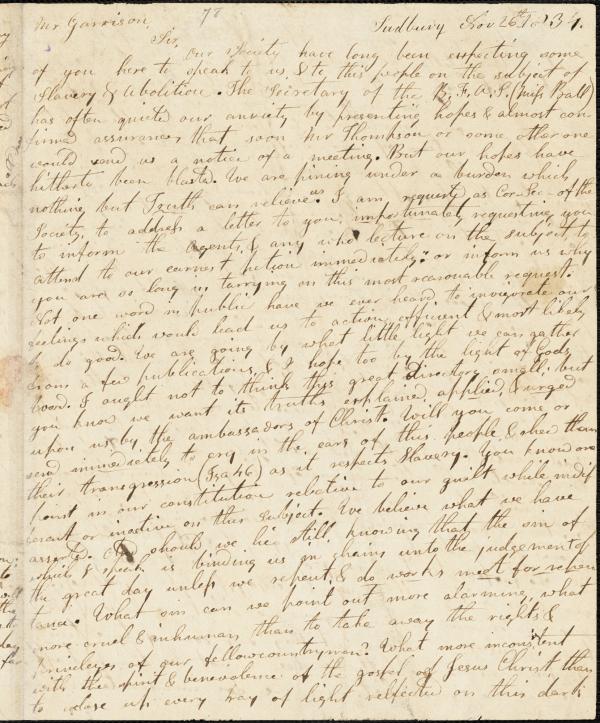 Mr Garrison, 78 Sudbury Nov 26th 1834.
Sir,
Our society have long been expecting some
of you here to speak to us, & to this people on the subject of
Slavery & Abolition. The Secretary of the B. F. A. S. (Miss Ball)
has often quieted our anxiety by presenting hopes & almost con-
firmed assurances that soon Mr Thompson or some other one
would send us a notice of a meeting. But our hopes have
hitherto been blasted. We are pining under a burden which
nothing but Truth can relieve us. I am requested as Cor. Sec- of the
Society, to address a letter to you, importunately requesting you
to inform the agents, & any who lecture on the subject to
attend to our earnest petition immediately: or inform us why
you are so long in tarrying on this most reasonable request.
Not one word in public have we ever heard to invigorate our
feelings which would lead us to action efficient & most likely
to do good. We are going by what little light we can gather
from a few publications, & I hope too by the light of Gods
word. I ought not to think this great directory small, but
you know we want its truths explained, applied, & urged
upon us by the ambassadors of Christ. Will you come or
send immediately to cry in the ears of this people & shew them
their transgression (Isa 46) as it respects Slavery. You know one
point in our constitution relative to our guilt while indif
erent or inactive on this subject. We believe what we have
asserted. should we lie still knowing that the sin of
which I speak is binding us in chains unto the judgement of
the great day unless we repent, & do works meet for repen
tance. What sin can we point out more alarming, what
more cruel & inhuman than to take away the rights &
priveleges of our fellowcountrymen? What more inconsistent
with the spirit & benevolence of the gospel of Jesus Christ than
to close up every ray of light reflected on this dark